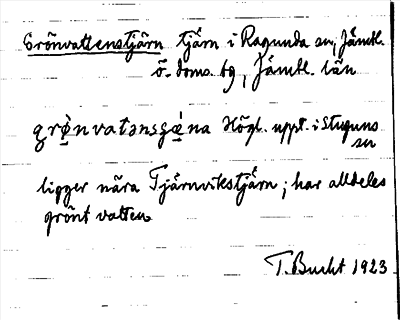 Grönvattenstjärn tjärn i Ragunda sn, Jämtl.
ö. doms. tg, Jämtl. län
grø̀nvatənsʒœ̀na Högl. uppt. i Stuguns
sn
ligger nära Tjärnvikstjärn; har alldeles
grönt vatten
T. Bucht 1923